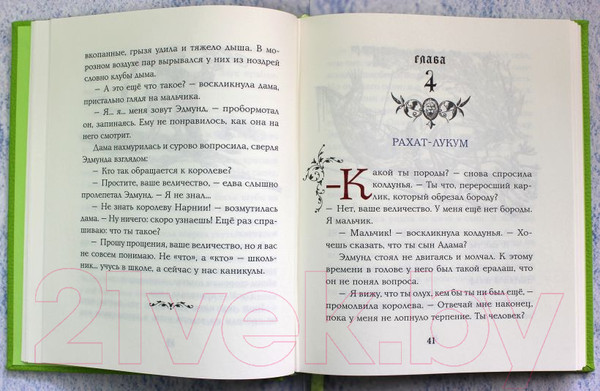 вкопанные, грызя удила и тяжело дыша. В мо-
розном воздухе пар вырывался у них из ноздрей
словно клубы дыма.
– А это ещё что такое? – воскликнула дама,
пристально глядя на мальчика.
– Я... я... меня зовут Эдмунд, – пробормотал
он, запинаясь. Ему не понравилось, как она на
него смотрит.
Дама нахмурилась и сурово вопросила, сверля
Эдмунда взглядом:
– Кто так обращается к королеве?
– Простите, ваше величество, – едва слышно
пролепетал Эдмунд. – Я не знал...
– Не знать королеву Нарнии! – возмутилась
дама. – Ну ничего: скоро узнаешь! Ещё раз спра-
шиваю: что ты такое?
– Прошу прощения, ваше величество, но я вас
не совсем понимаю. Не «что», а «кто» – школь-
ник... учусь в школе, а сейчас у нас каникулы.
ГЛАВА
4
РАХАТ-ЛУКУМ
–Какой ты породы? – снова спросила
колдунья. – Ты что, переросший кар-
лик, который обрезал бороду?
– Нет, ваше величество. У меня ещё нет бороды.
Я мальчик.
– Мальчик! – воскликнула колдунья. – Хо-
чешь сказать, что ты сын Адама?
Эдмунд стоял не двигаясь и молчал. К этому
времени в голове у него был такой ералаш, что
он не понял вопроса.
– Я вижу, что ты олух, кем бы ты ни был ещё, –
промолвила королева. – Отвечай мне наконец,
пока у меня не лопнуло терпение. Ты человек?
41
21vek.by